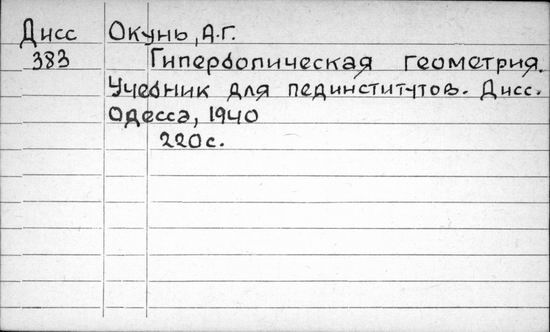 Дисс Окунь, А.Г.
383 Гиперболическая геометрия.
Учебник для пединститутов. Дисс.
Одесса, 1940
220с.